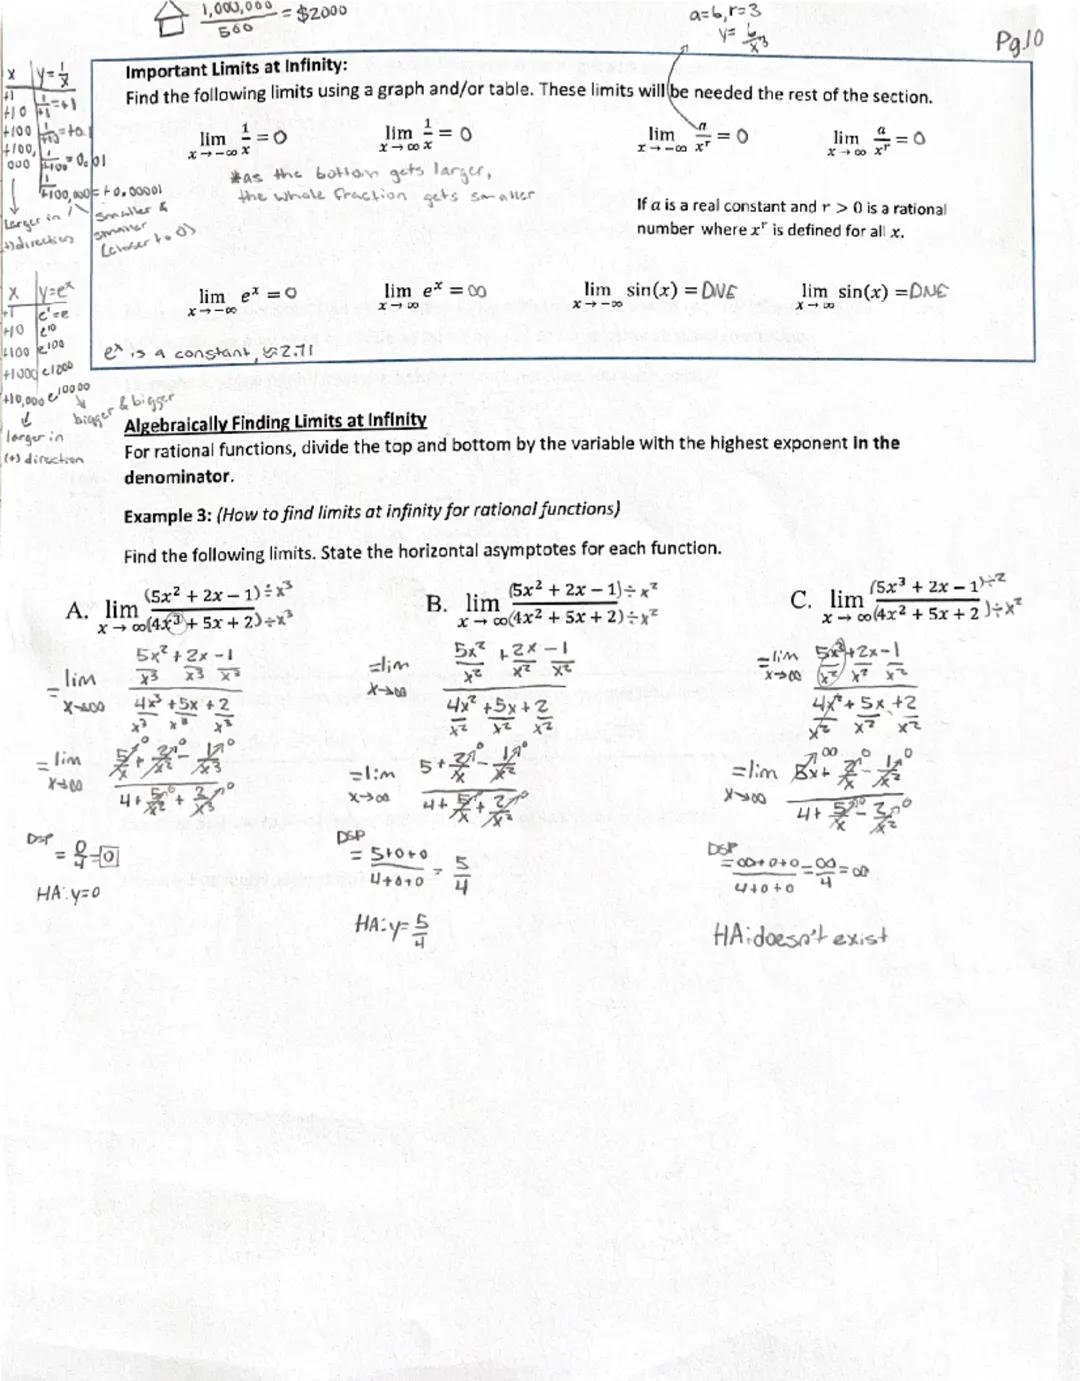 1,000,000 / 500 = $2000
a=6, r=3
y= 6/x³
Pg.10
x | y=1/x
+1 | 1/+1=+1
+10
+100
+100,000
1/+100,000=+0.00001
Larger in (+) direction
smaller & smaller (closer to 0)
Important Limits at Infinity:
Find the following limits using a graph and/or table. These limits will be needed the rest of the section.
lim x→-∞ 1/x = 0
lim x→∞ 1/x = 0
lim x→-∞ a/xʳ = 0
lim x→∞ a/xʳ = 0
*as the bottom gets larger,
the whole fraction gets smaller
If a is a real constant and r > 0 is a rational
number where xʳ is defined for all x.
x | y=eˣ
+1 | e¹=e
+10 | e¹⁰
+100 | e¹⁰⁰
+1000 | e¹⁰⁰⁰
+10,000 | e¹⁰⁰⁰⁰
larger in
(+) direction
bigger & bigger
lim x→-∞ eˣ = 0
lim x→∞ eˣ = ∞
lim x→-∞ sin(x) = DNE
lim x→∞ sin(x) = DNE
eˣ is a constant, ≈2.71
Algebraically Finding Limits at Infinity
For rational functions, divide the top and bottom by the variable with the highest exponent in the
denominator.
Example 3: (How to find limits at infinity for rational functions)
Find the following limits. State the horizontal asymptotes for each function.
A. lim x→∞ (5x² + 2x − 1)÷x³ / (4x³ + 5x + 2)÷x³
= lim x→∞ (5x²/x³ + 2x/x³ - 1/x³) / (4x³/x³ + 5x/x³ + 2/x³)
= lim x→∞ (5/x + 2/x² - 1/x³) / (4 + 5/x² + 2/x³)
DSP
= 0/4 = 0
HA: y=0
B. lim x→∞ (5x² + 2x − 1)÷x² / (4x² + 5x + 2)÷x²
=lim x→∞ (5x²/x² + 2x/x² - 1/x²) / (4x²/x² + 5x/x² + 2/x²)
=lim x→∞ (5 + 2/x - 1/x²) / (4 + 5/x + 2/x²)
DSP
= 5+0+0 / 4+0+0 = 5/4
HA: y= 5/4
C. lim x→∞ (5x³ + 2x − 1)÷x² / (4x² + 5x + 2)÷x²
=lim x→∞ (5x³/x² + 2x/x² - 1/x²) / (4x²/x² + 5x/x² + 2/x²)
=lim x→∞ (5x + 2/x - 1/x²) / (4 + 5/x - 2/x²)
DSP
= ∞+0+0 / 4+0+0 = ∞/4 = ∞
HA: doesn't exist